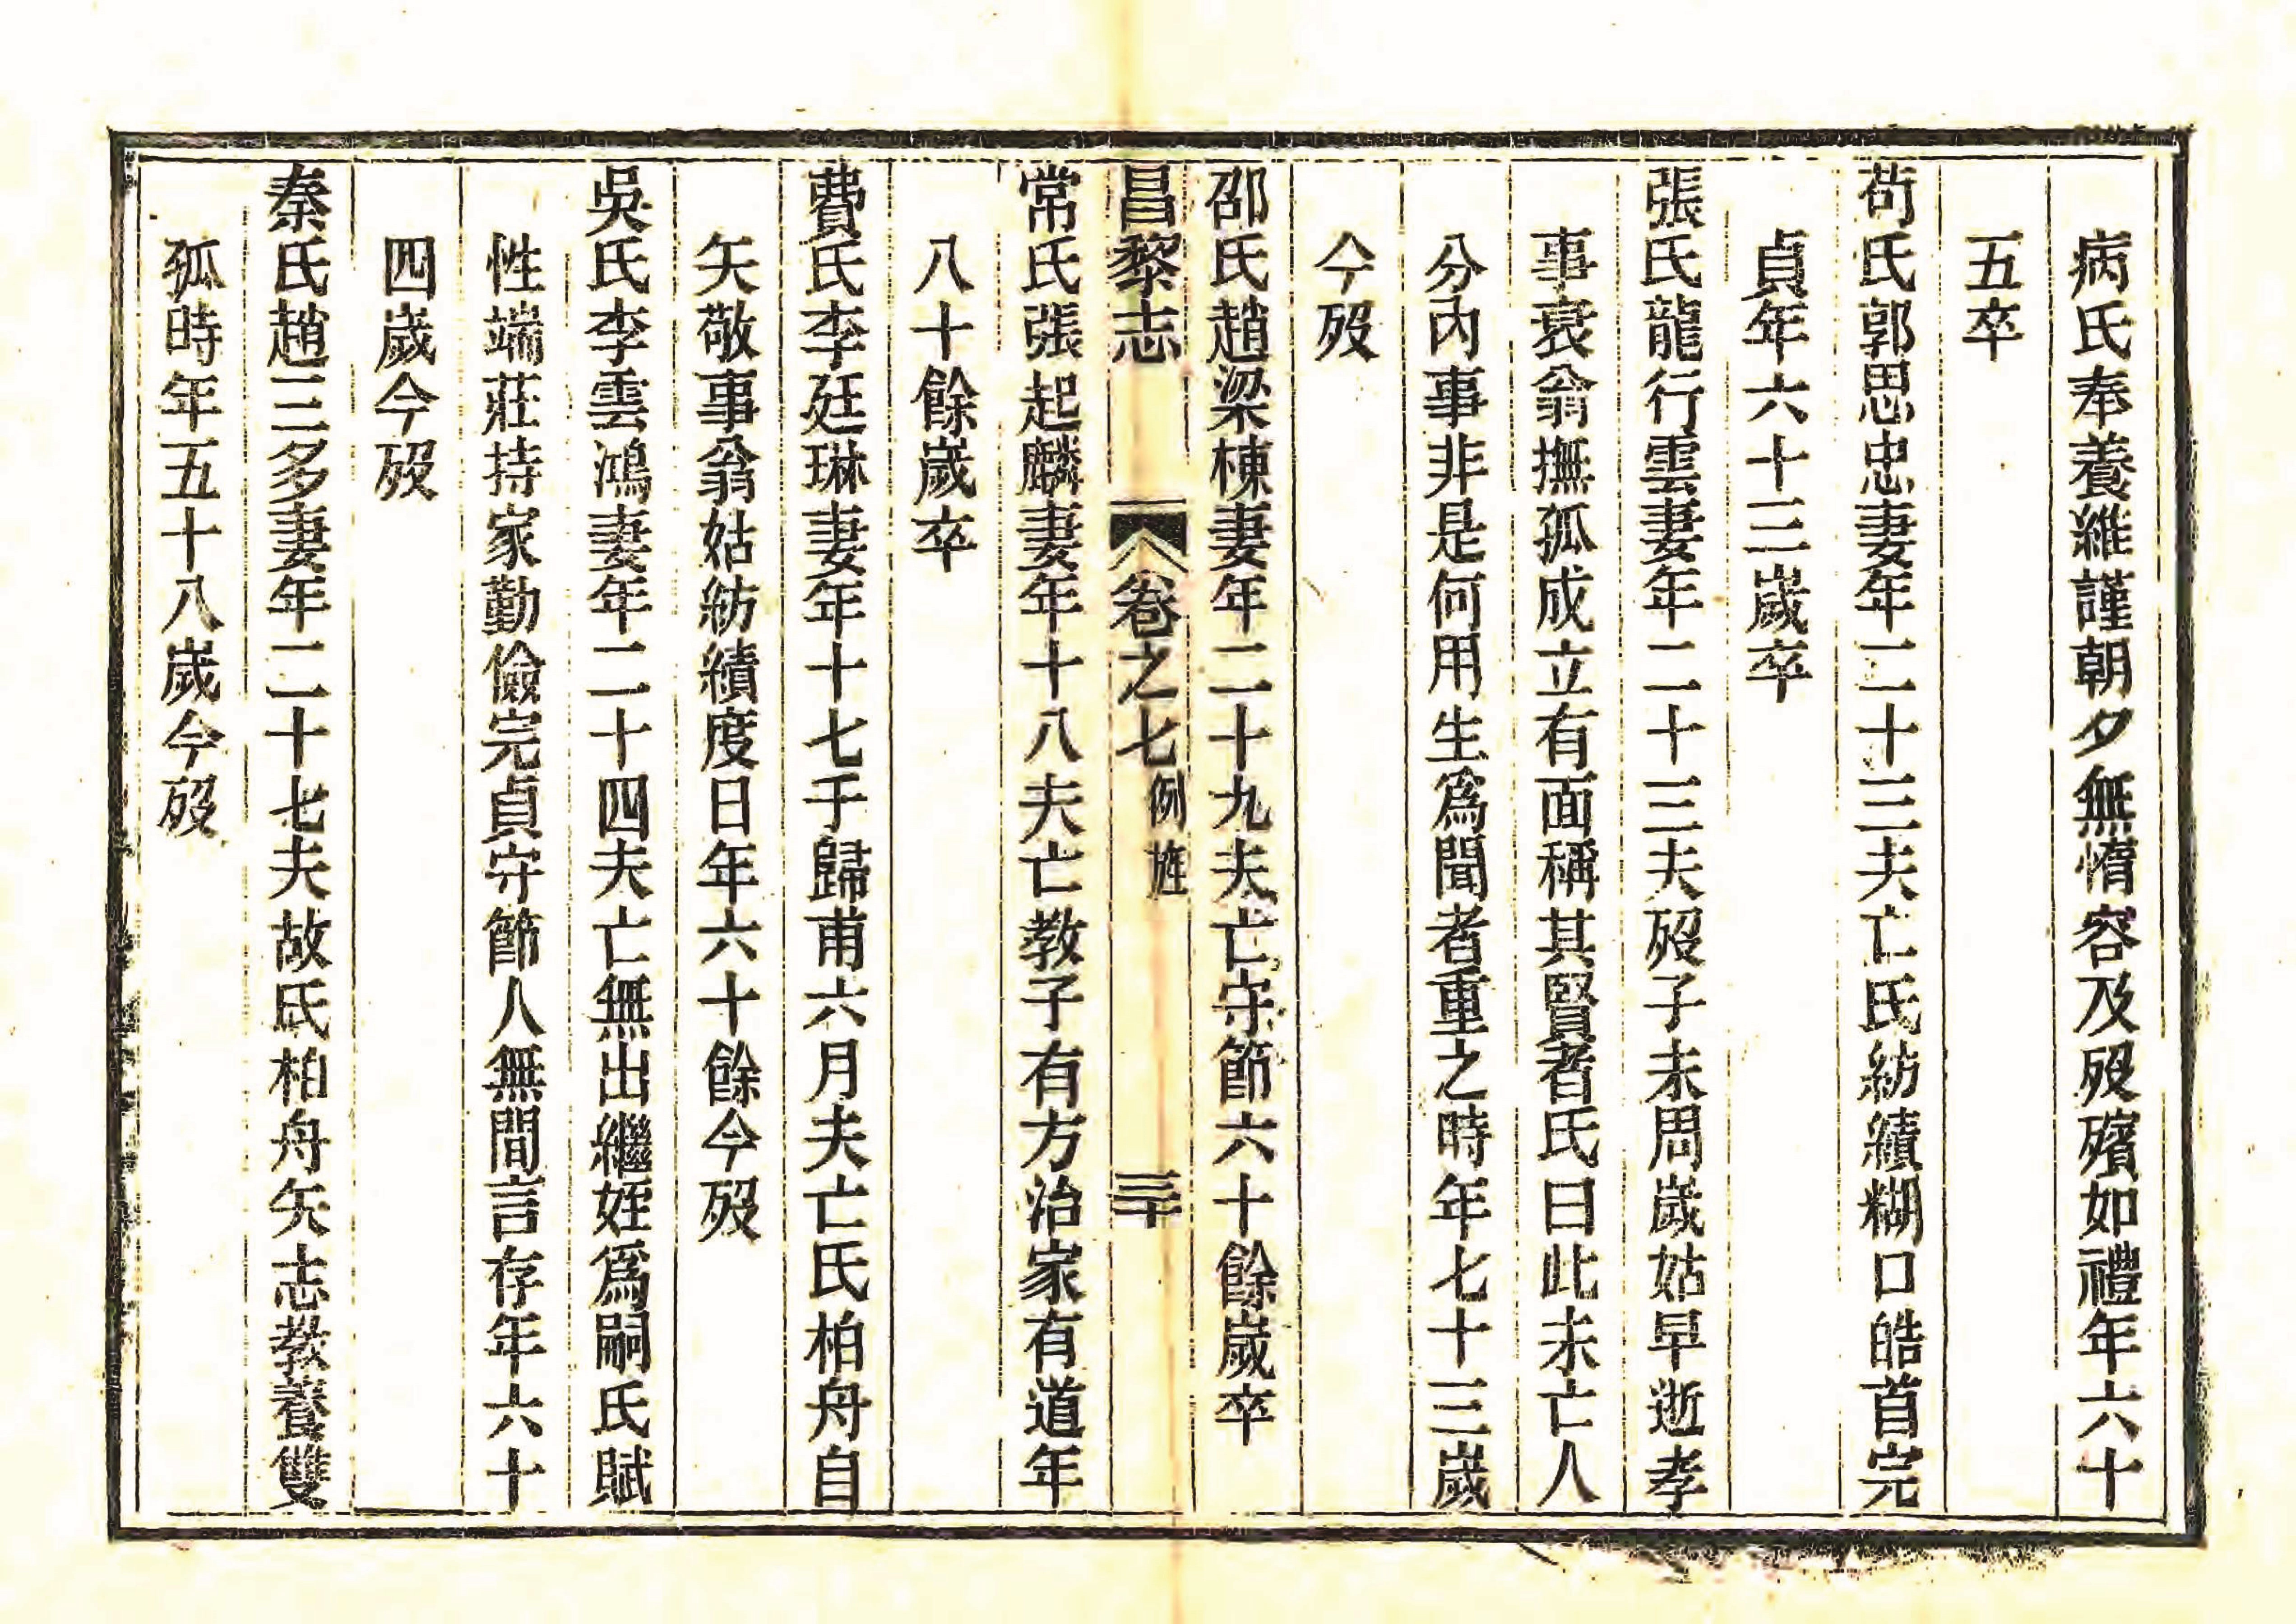 病氏奉養維謹朝夕無惰容及歿殯如禮年六十
五卒
苟氏郭思忠妻年二十三夫亡氏紡績糊口皓首完
貞年六十三歲卒
張氏龍行雲妻年二十三夫歿子未周歲姑早逝孝
事衰翁撫孤成立有面稱其賢者氏曰此未亡人
分內事非是何用生為聞者重之時年七十三歲
今歿
邵氏趙梁棟妻年二十九夫亡守節六十餘歲卒
昌黎志 卷之七 例旌 三十
常氏張起麟妻年十八夫亡教子有方治家有道年
八十餘歲卒
費氏李廷琳妻年十七于歸甫六月夫亡氏柏舟自
矢敬事翁姑紡績度日年六十餘今歿
吳氏李雲鴻妻年二十四夫亡無出繼姪爲嗣氏賦
性端莊持家勤儉完貞守節人無間言存年六十
四歲今歿
秦氏趙三多妻年二十七夫故氏柏舟矢志教養雙
孤時年五十八歲今歿